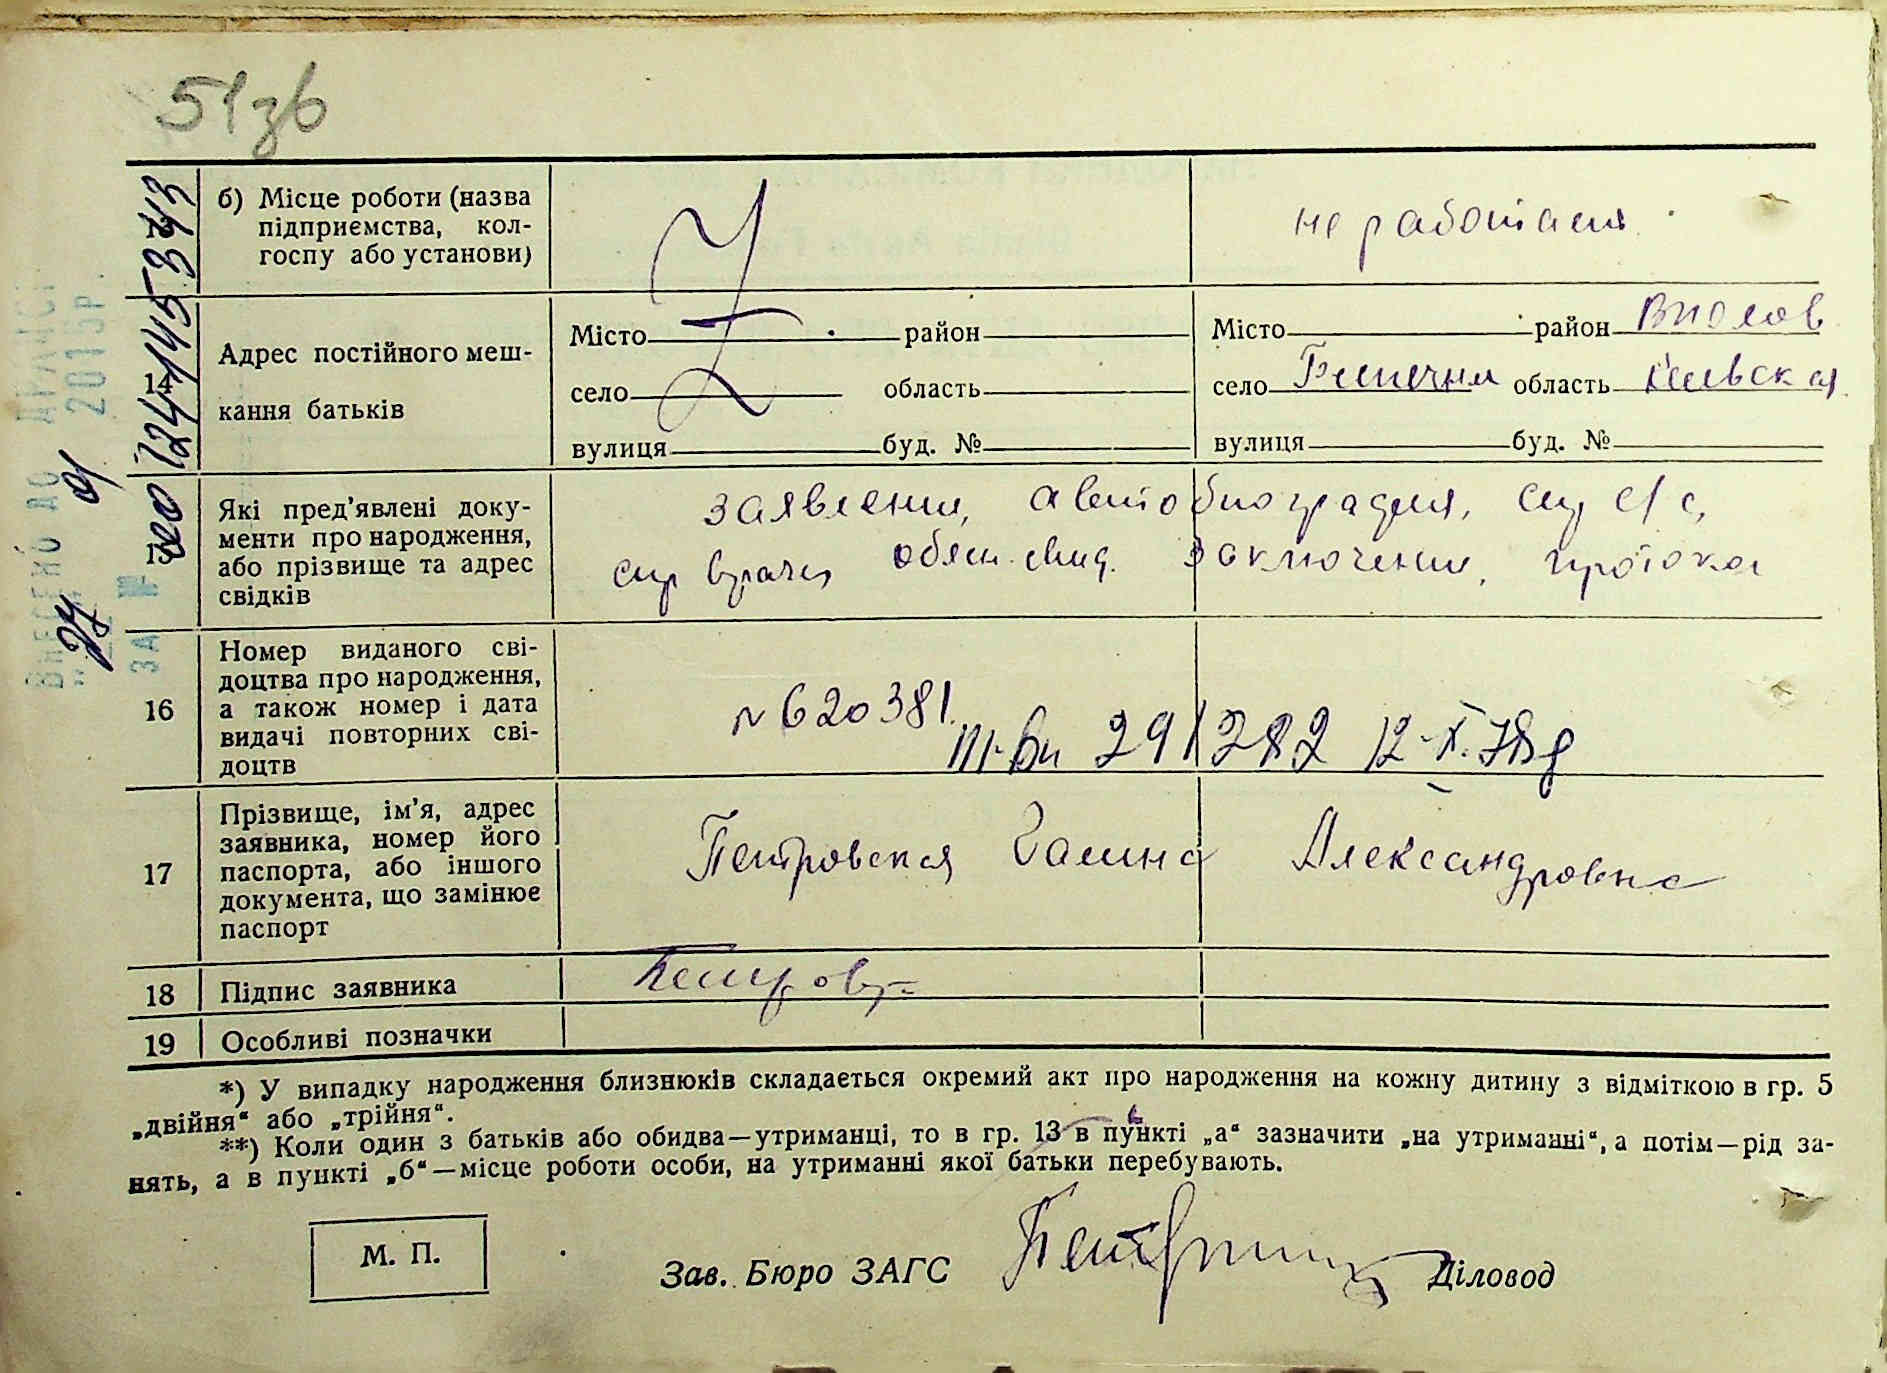 51зв
б) Місце роботи (назва
підприємства, кол-
госпу або установи)
не работает
14
Адрес постійного меш-
кання батьків
Місто район
село область
вулиця буд. №
Місто район
село область Киевская
вулиця буд. №
Які пред'явлені доку-
менти про народження,
або прізвище та адрес
свідків
заявление, автобиография,
врача, заключение, протокол
16
Номер виданого сві-
доцтва про народження,
а також номер і дата
видачі повторних сві-
доцтв
№ 620381
291282 12-X
17
Прізвище, ім'я, адрес
заявника, номер його
паспорта, або іншого
документа, що замінює
паспорт
Петровская Галина Александровна
18
Підпис заявника
19
Особливі позначки
*) У випадку народження близнюків складається окремий акт про народження на кожну дитину з відміткою в гр. 5
„двійня“ або „трійня“.
**) Коли один з батьків або обидва—утриманці, то в гр. 13 в пункті „а“ зазначити „на утриманні“, а потім—рід за-
нять, а в пункті „б“—місце роботи особи, на утриманні якої батьки перебувають.
М. П.
Зав. Бюро ЗАГС
Діловод
2015р.